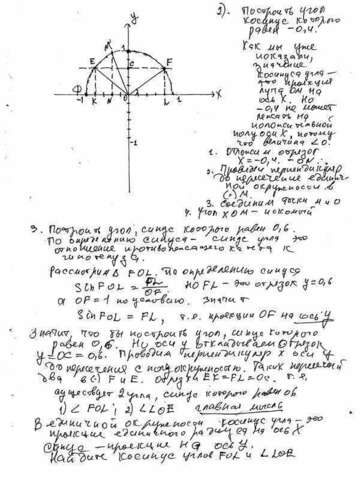 y
1
M
E
C
F
Φ
-1
K
N
O
L
1
X
2). Построить угол
косинус которого
равен -0,4.
Как мы уже
показали,
значение
косинуса угла -
это проекция
луча ОМ на
ось X. Но
-0,4 не может
лежать на
положительной
полуоси X, потому
что величина <0.
1. Отложим отрезок
X=-0,4. - ON.
2. Проведем перпендикуляр
до пересечение единич-
ной окружности в
(·) M.
3. Соединим точки M и O
4. Угол XOM - искомой
3. Построить угол, синус которого равен 0,6.
По определению синуса - синус угла это
отношение противолежащего катета к
гипотенузе.
Рассмотрим Δ FOL. По определению синуса
Sin FOL = FL/OF. Но FL - это отрезок y=0,6
а OF=1 по условию. Значит
Sin FOL = FL, т.е. проекции OF на ось y
Значит, что бы построить угол, синус которого
равен 0,6. На оси y откладываем отрезок
y=OC=0,6. Проводим перпендикуляр к оси y
до пересечения с полуокружностью. Таких пересечений
два в (·) F и E. Отрезки EK=FL=OC. т.е.
существует 2 угла, синус которого равен 0,6
1) ∠ FOL; 2) ∠ LOE главная мысль
В единичной окружности косинус угла - это
проекция единичного радиуса на ось X
синус - проекция на ось y.
Найдите косинус углов FOL и ∠ LOE